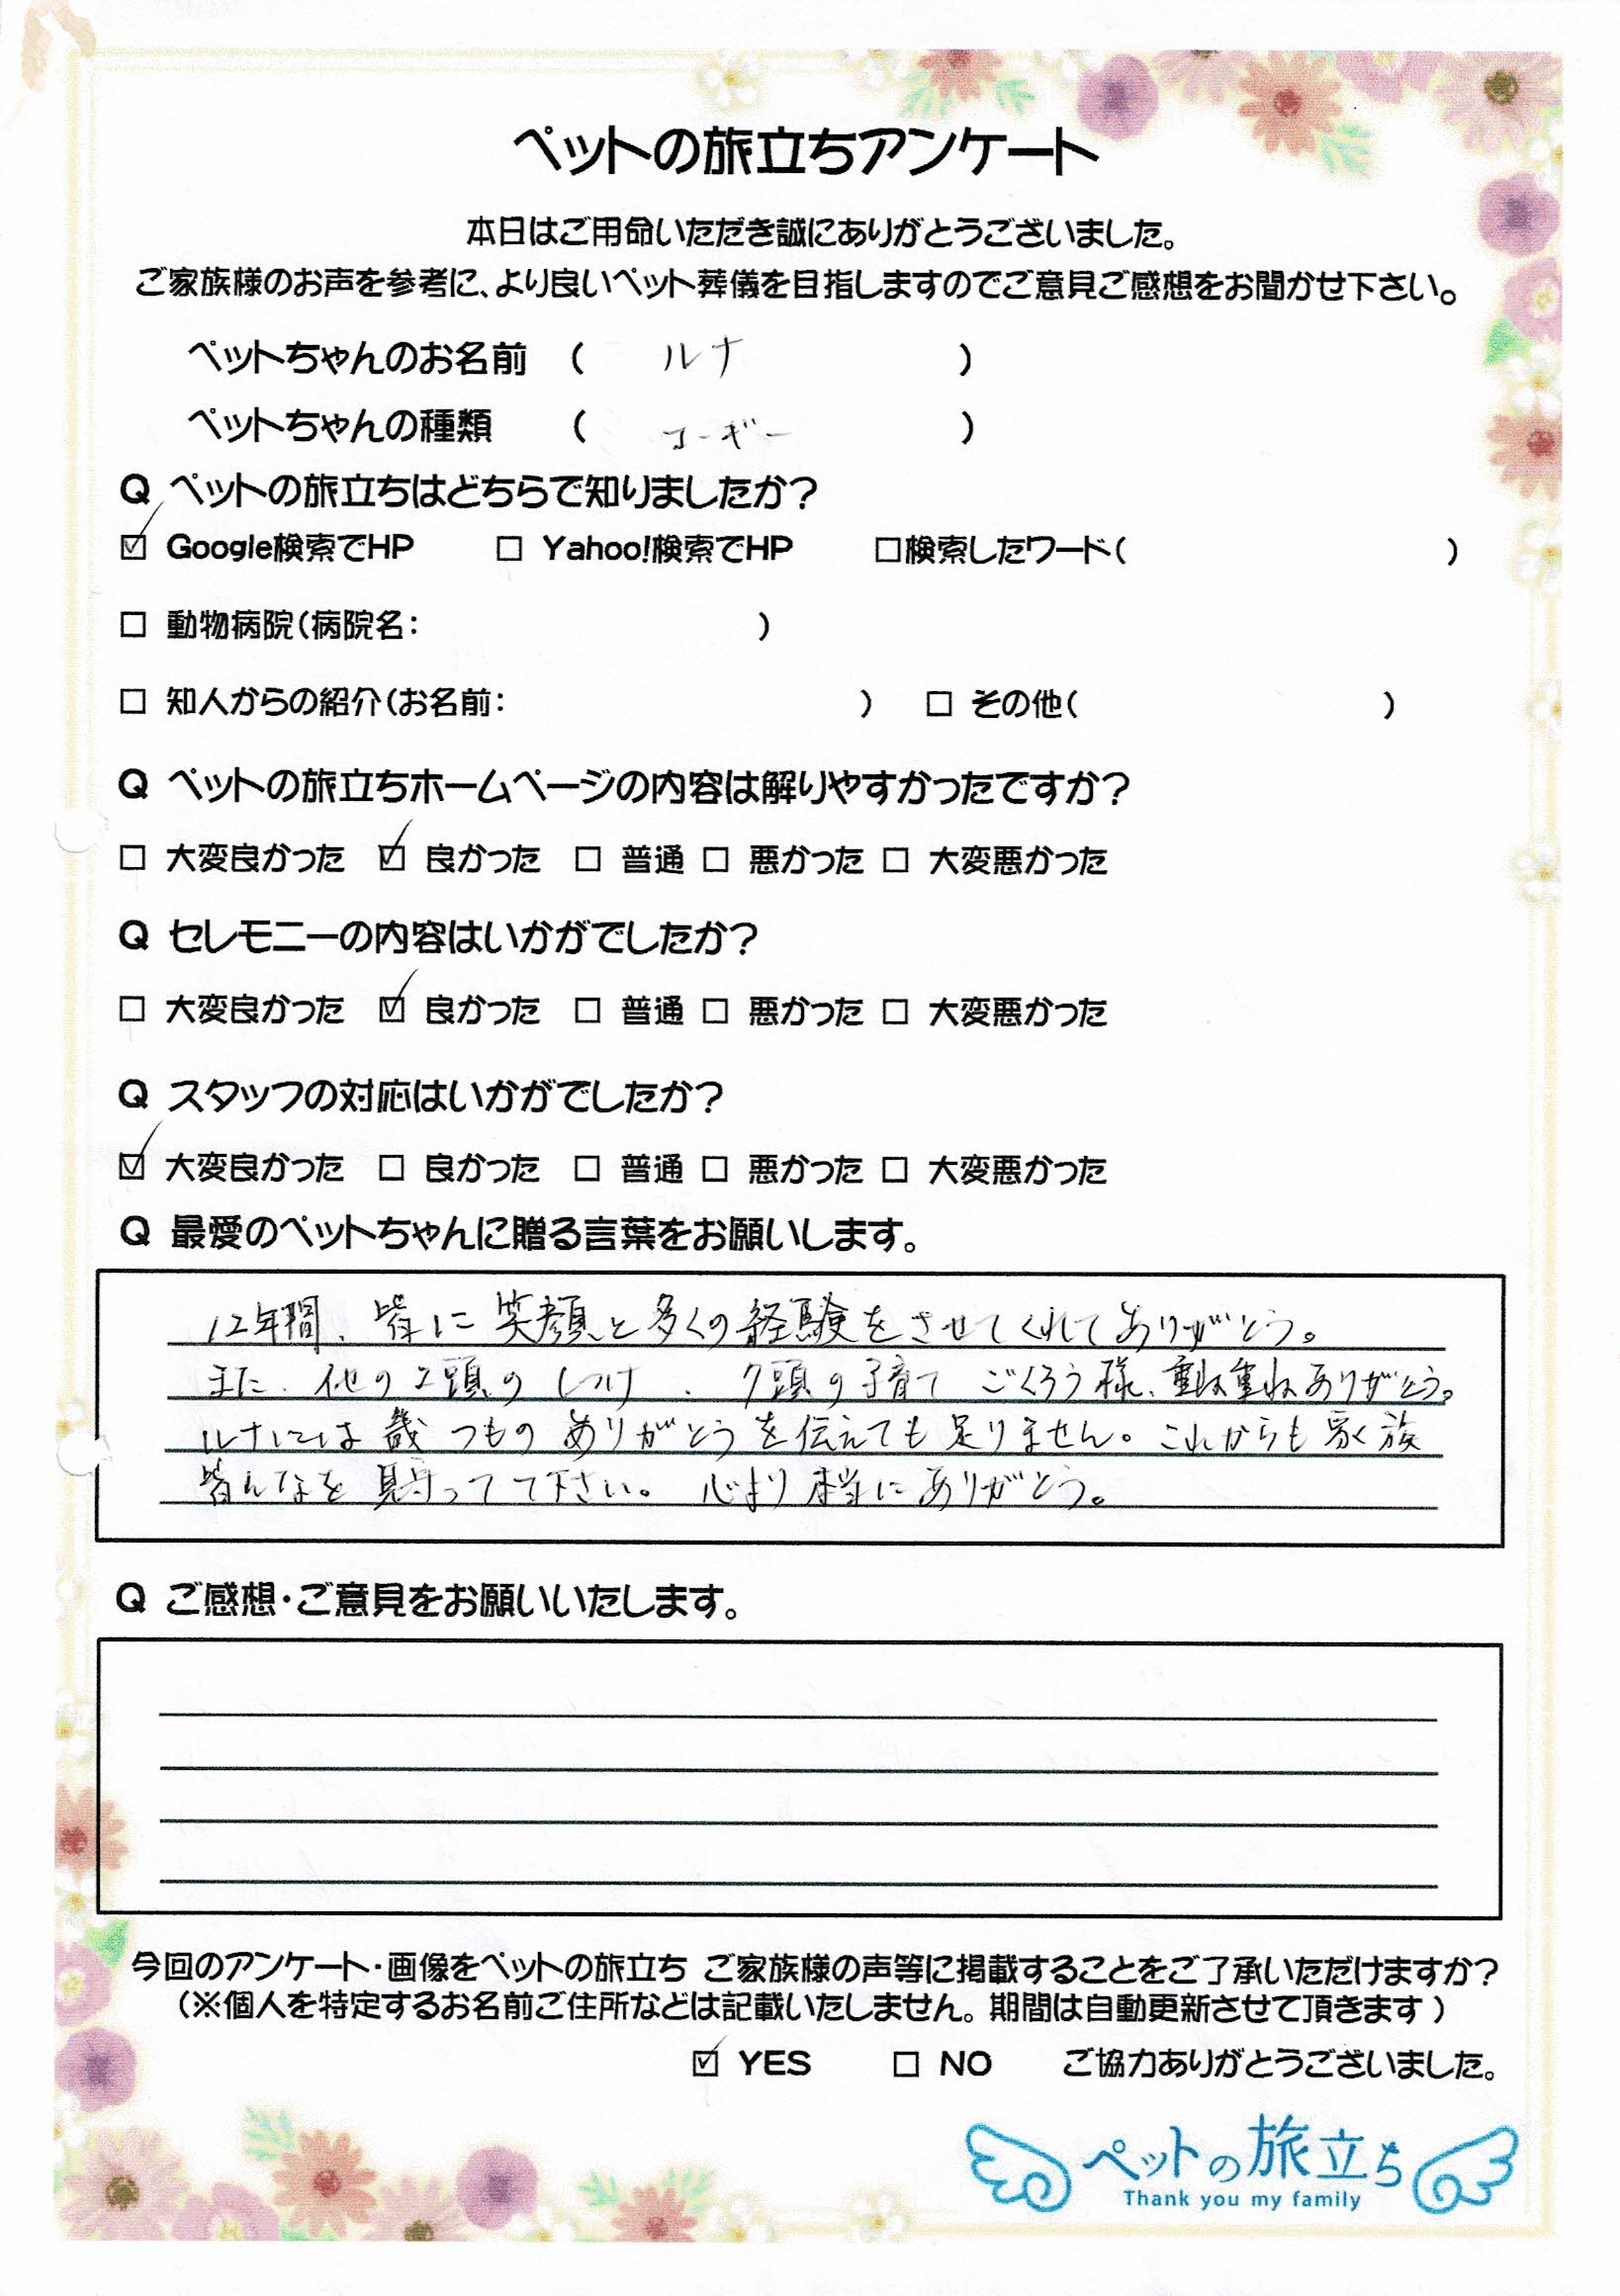 ペットの旅立ちアンケート
本日はご用命いただき誠にありがとうございました。
ご家族様のお声を参考に、より良いペット葬儀を目指しますのでご意見ご感想をお聞かせ下さい。
ペットちゃんのお名前 ( ルナ )
ペットちゃんの種類 ( コーギー )
Q ペットの旅立ちはどちらで知りましたか?
☑ Google検索でHP □ Yahoo!検索でHP □検索したワード( )
□ 動物病院(病院名: )
□ 知人からの紹介(お名前: ) □ その他( )
Q ペットの旅立ちホームページの内容は解りやすかったですか?
□ 大変良かった ☑ 良かった □ 普通 □ 悪かった □ 大変悪かった
Q セレモニーの内容はいかがでしたか?
□ 大変良かった ☑ 良かった □ 普通 □ 悪かった □ 大変悪かった
Q スタッフの対応はいかがでしたか?
☑ 大変良かった □ 良かった □ 普通 □ 悪かった □ 大変悪かった
Q 最愛のペットちゃんに贈る言葉をお願いします。
12年間、皆に笑顔と多くの経験をさせてくれてありがとう。
また、他の2頭のしつけ、7頭の子育てごくろう様、重ね重ねありがとう。
ルナには幾つものありがとうを伝えても足りません。これからも家族
皆んなを見守ってて下さい。心より本当にありがとう。
Q ご感想・ご意見をお願いいたします。
今回のアンケート・画像をペットの旅立ち ご家族様の声等に掲載することをご了承いただけますか?
(※個人を特定するお名前ご住所などは記載いたしません。期間は自動更新させて頂きます)
☑ YES □ NO ご協力ありがとうございました。
ペットの旅立ち
Thank you my family